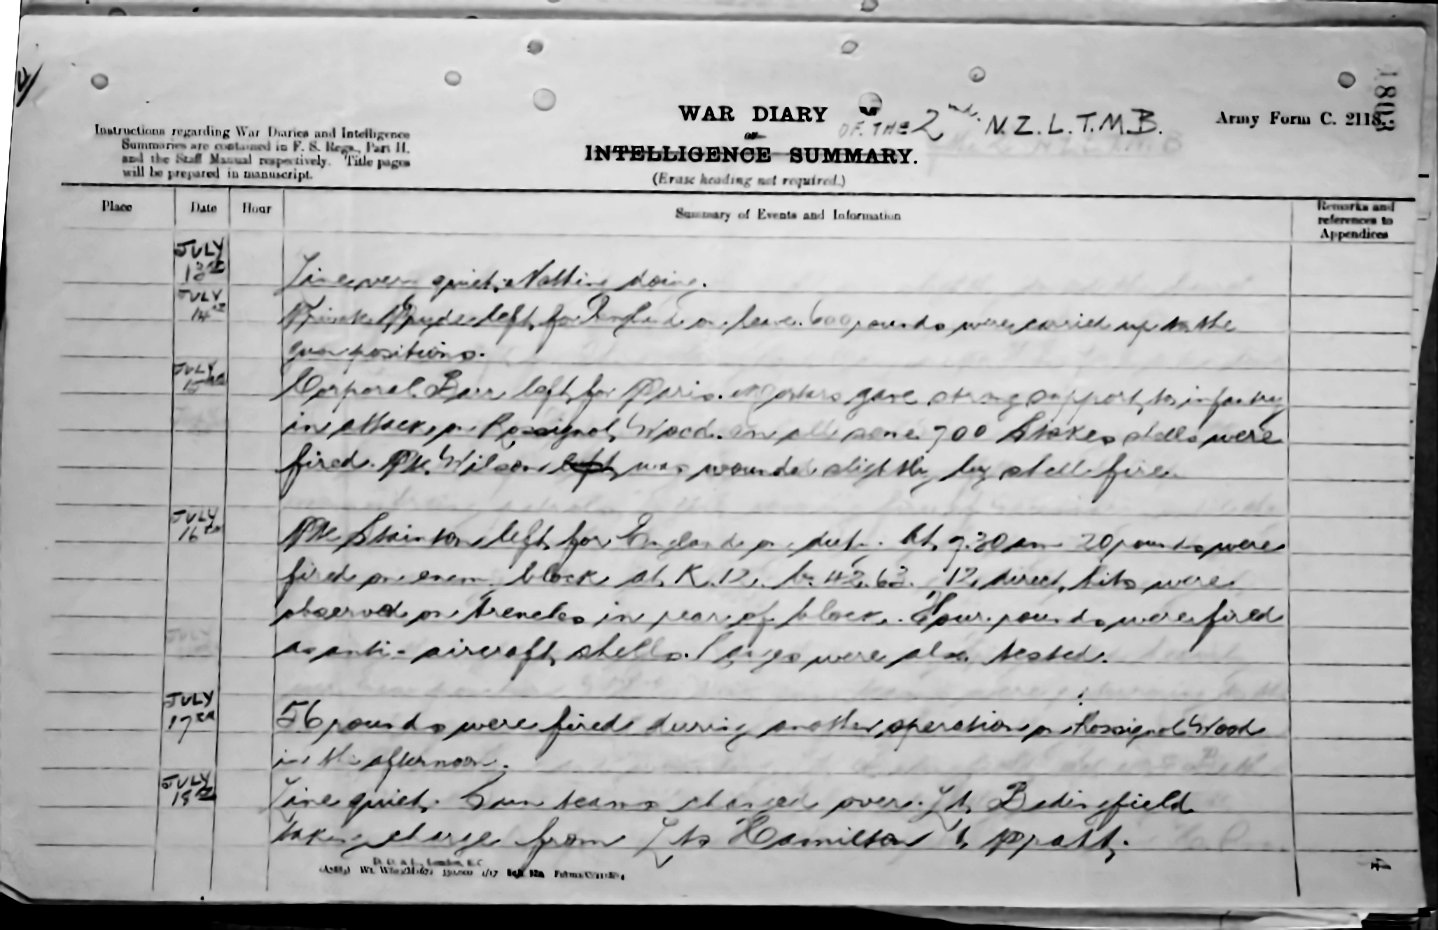 1803
WAR DIARY
OF THE 2nd. N.Z.L.T.M.B.
Army Form C. 2118.
or
INTELLIGENCE SUMMARY.
(Erase heading not required.)
Instructions regarding War Diaries and Intelligence
Summaries are contained in F. S. Regs., Part II.
and the Staff Manual respectively. Title pages
will be prepared in manuscript.
Place Date Hour Summary of Events and Information Remarks and references to Appendices
JULY 13th Line very quiet. Nothing doing.
JULY 14th Private left for England on leave. 600 rounds were carried up to the
gun positions.
JULY 15th Corporal Barr left for Paris. Mortars gave strong support to infantry
in attack on Rossignol Wood. In all some 700 Stokes shells were
fired. Pte. Wilson left was wounded slightly by shell fire.
JULY 16th Pte Stainton left for England on duty. At 9.30 am 20 rounds were
fired on enemy block at K.12. b. 42.63. 12 direct hits were
observed on trenches in rear of block. Four rounds were fired
as anti-aircraft shells. were also tested.
JULY 17th 56 rounds were fired during another operation on Rossignol Wood
in the afternoon.
JULY 18th Line quiet. Gun teams changed over. Lt. Bedingfield
taking charge from Lts Hamilton & Pratt.
4